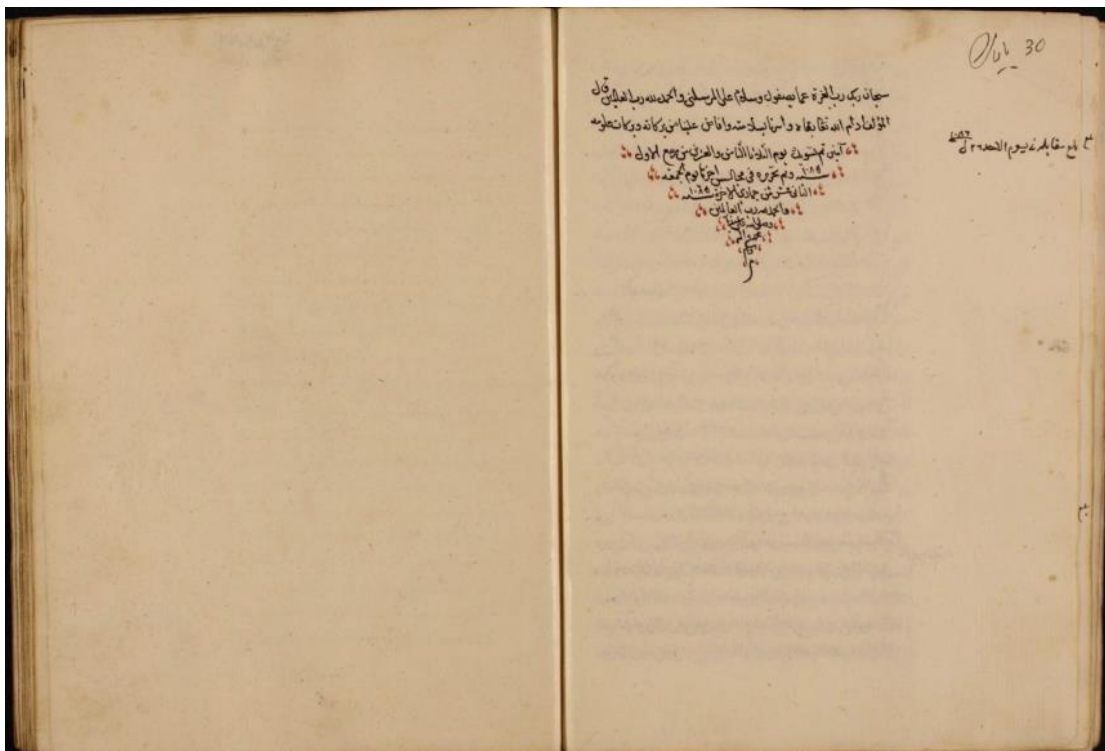 پایان 30
سبحان ربك رب العزة عما يصفون وسلام على المرسلين والحمد لله رب العالمين قال
المؤلف ادام الله تعالى بقاه وافاض علينا من بركاته وبركات علومه
آمين تم تسويد يوم الثلاثا الثامن والعشرين من ربيع الاول
سنه ١٠٨٥ وتم تحريره في مجالس اخرها يوم الجمعه
الثاني عشر من جمادى الاخرة سنه
والحمد لله رب العالمين
وصلى الله على سيدنا
محمد وآله
وسلم
م
بلغ مقابلة يوم الاحد ٢٦